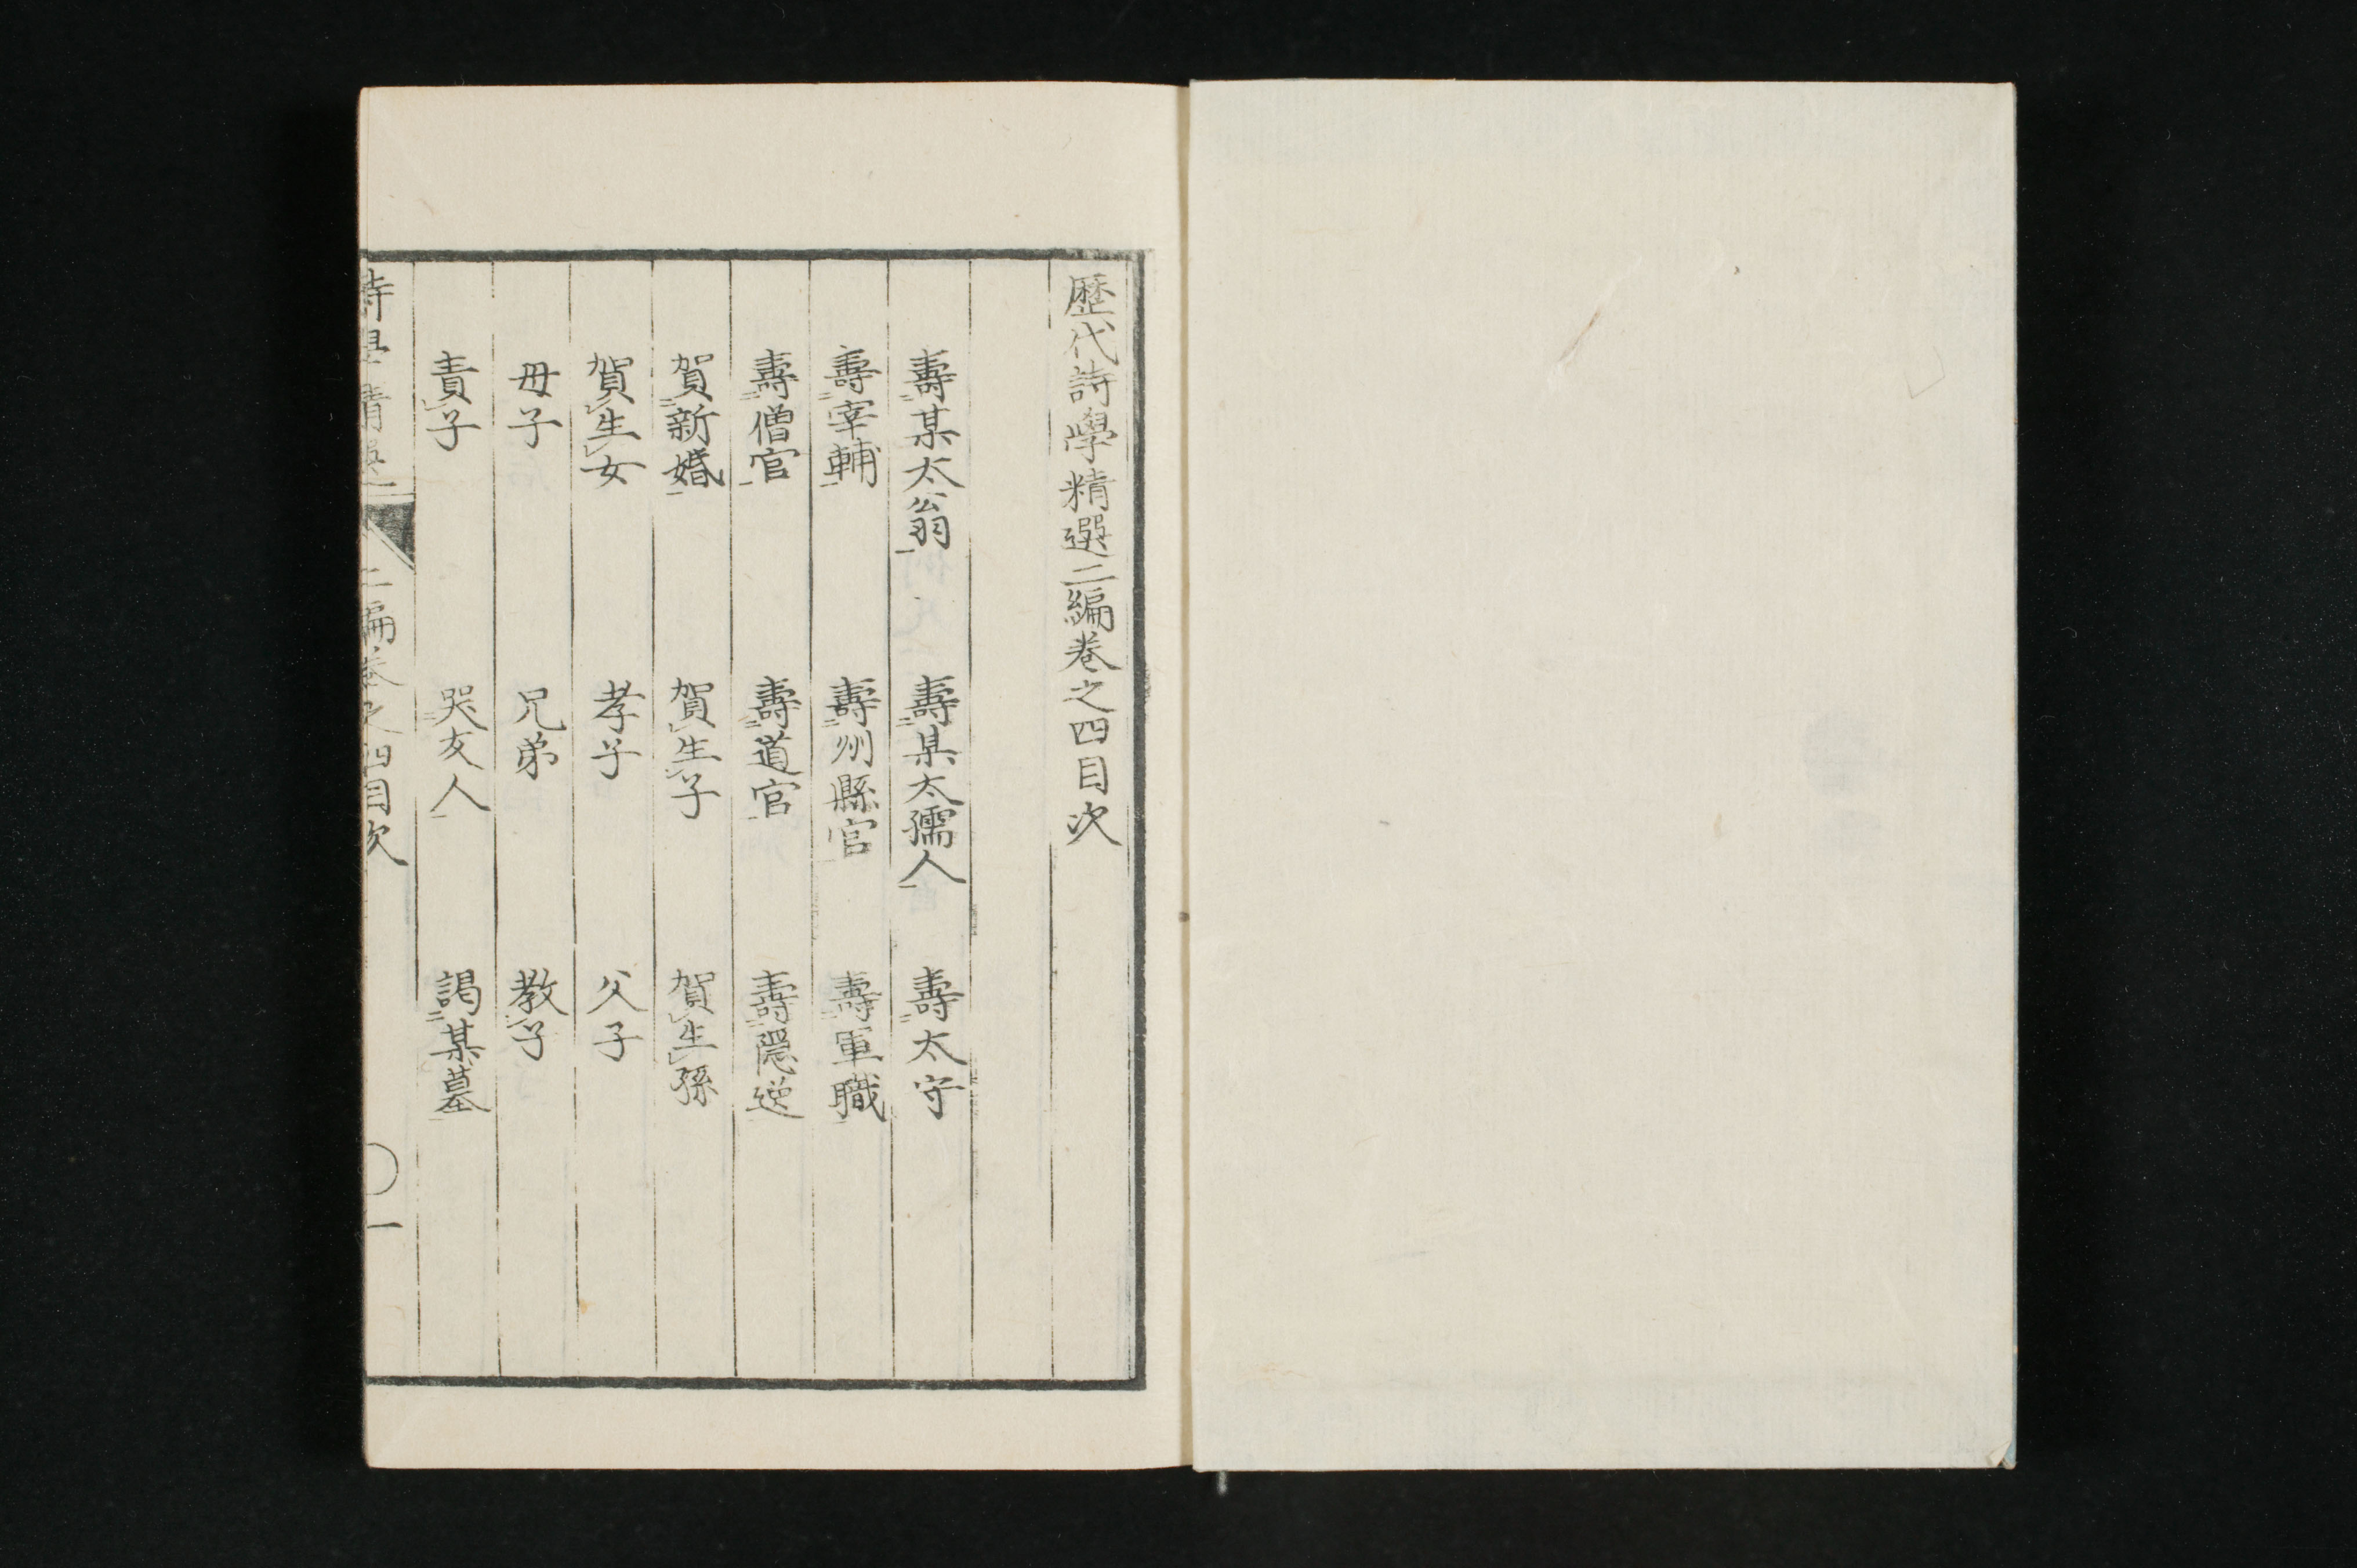 歷代詩學精選二編卷之四目次
壽某太翁 壽某太孺人 壽太守
壽宰輔 壽州縣官 壽軍職
壽僧官 壽道官 壽隱逆
賀新婚 賀生子 賀生孫
賀生女 孝子 父子
毋子 兄弟 教子
責子 哭友人 謁某墓
詩學精選 二編卷之四目次 〇一